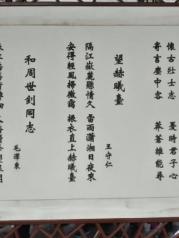 懷古壯士志 憂時君子心
寄言塵中客 莽蒼誰能尋
望赫曦臺
王守仁
隔江嶽麓懸情久 雷雨瀟湘日夜來
安得輕風掃微靄 振衣直上赫曦臺
和周世釗同志
毛澤東